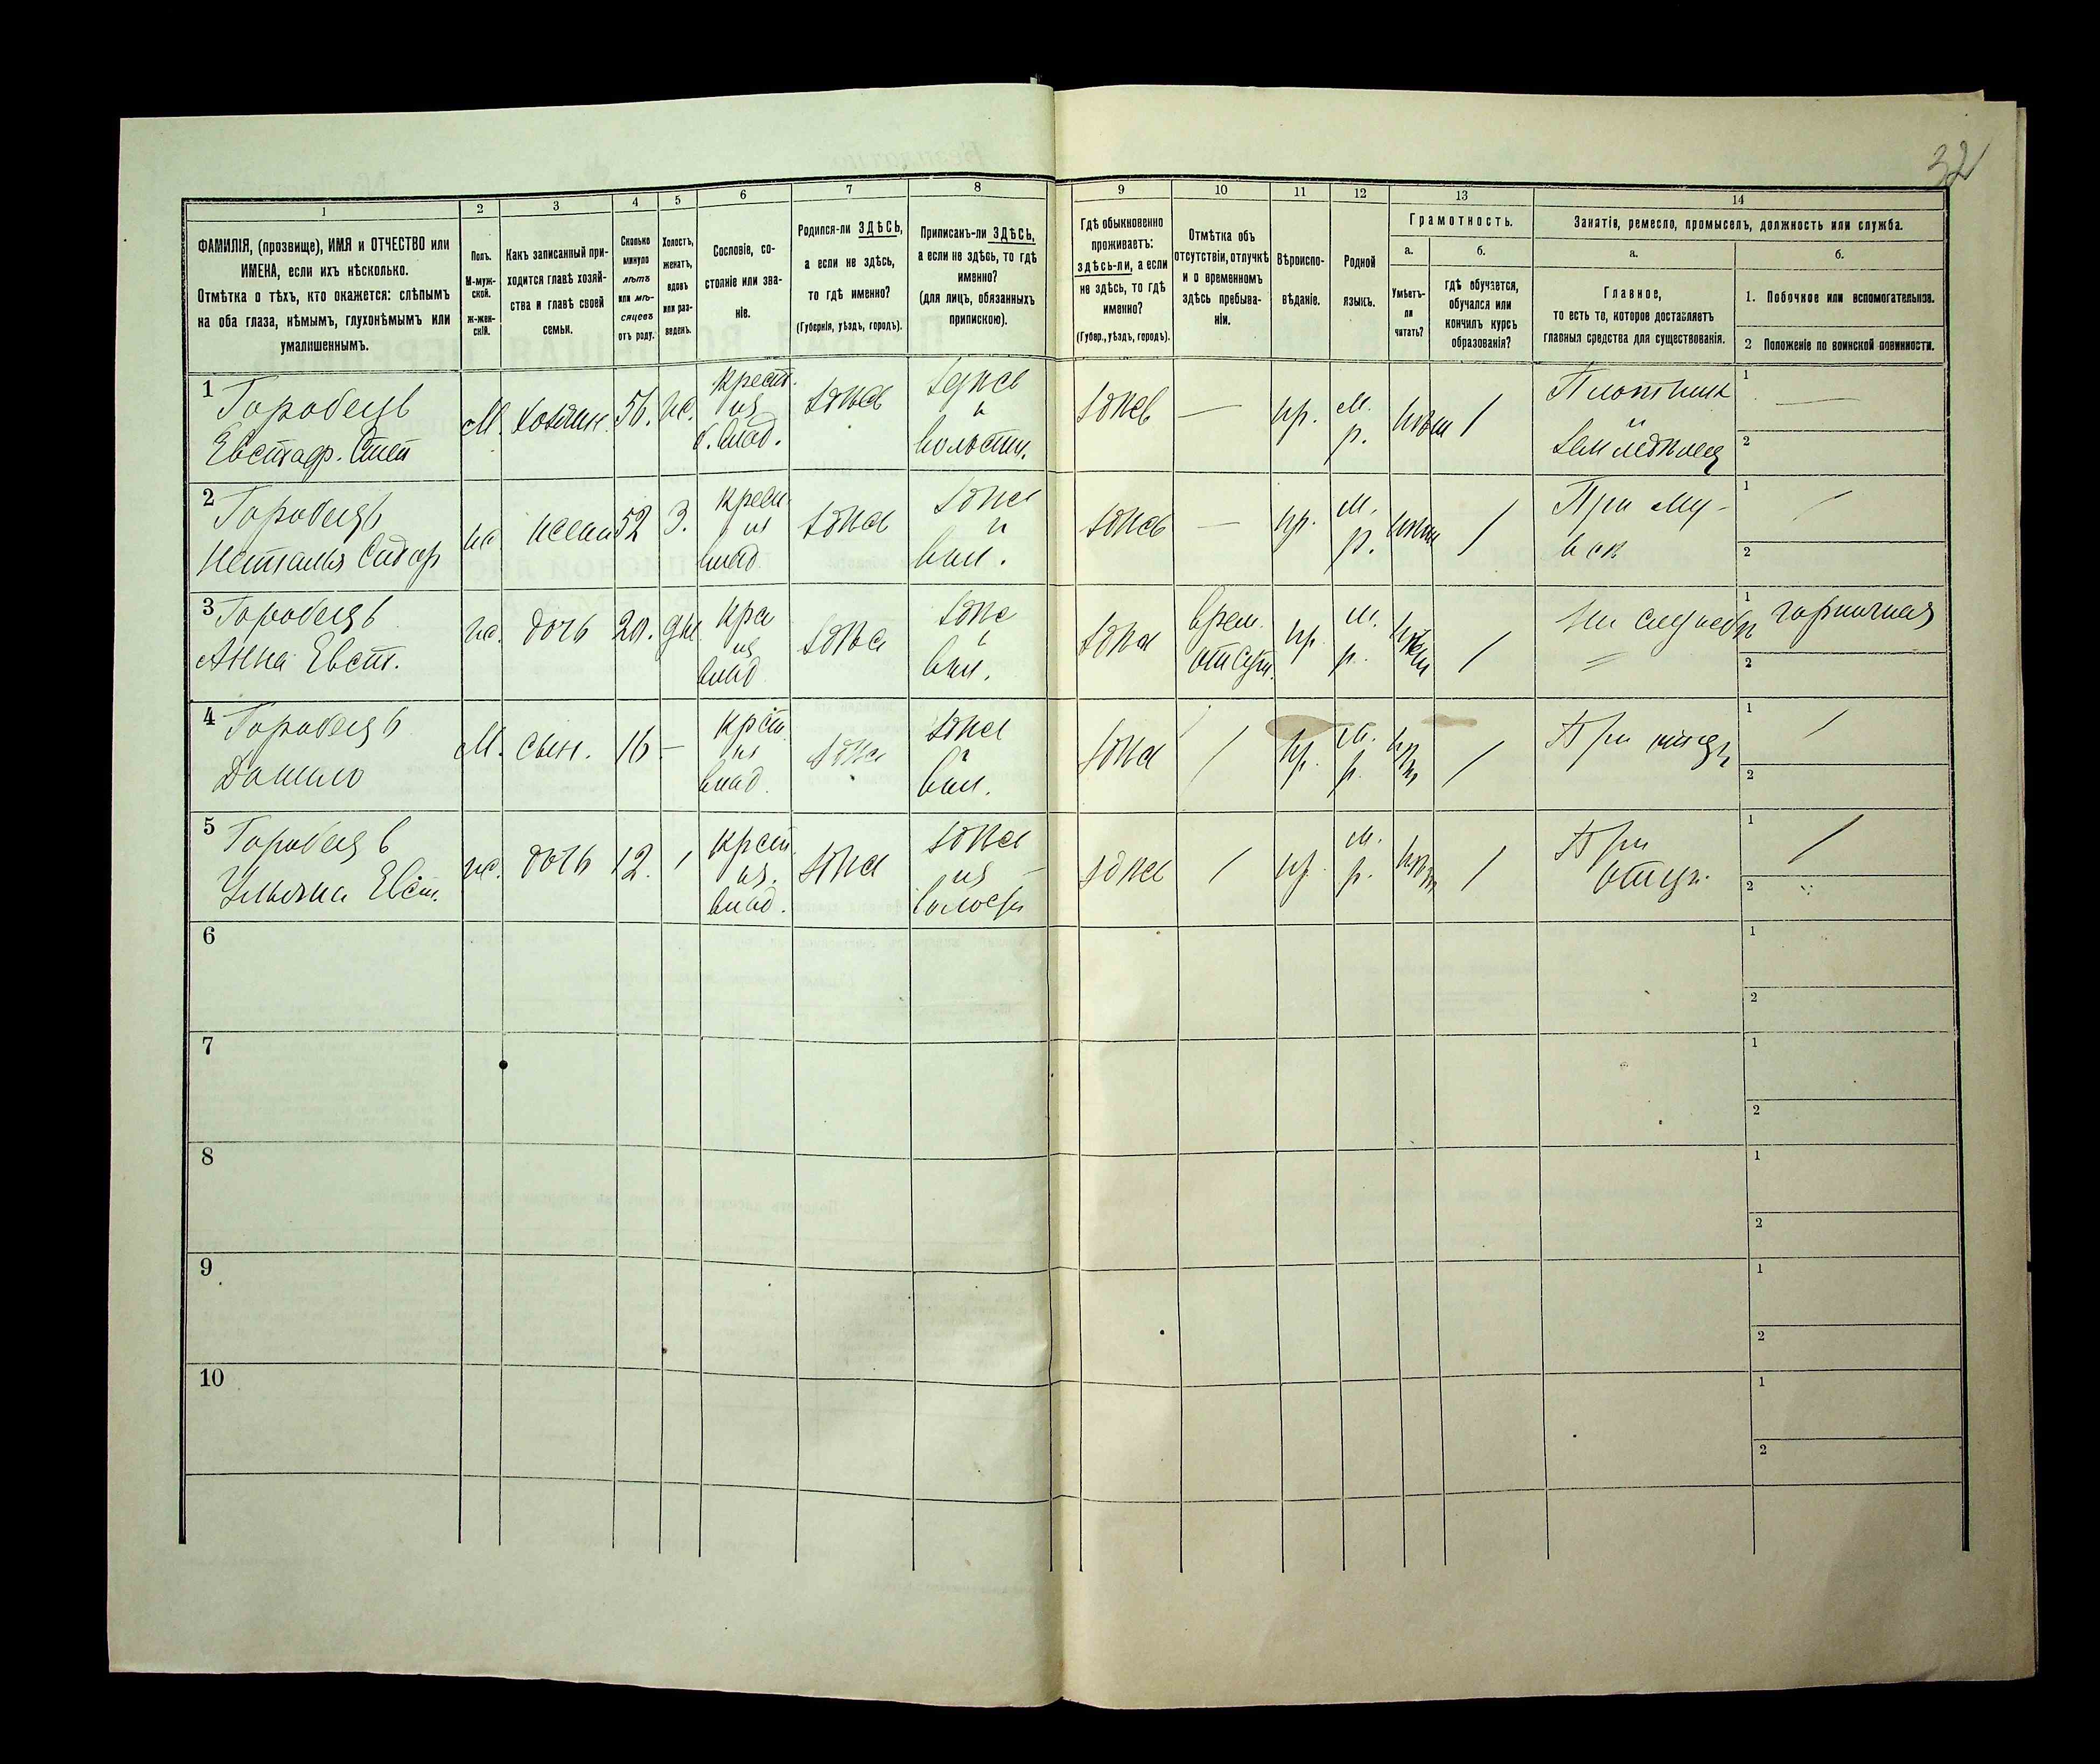 32
1
2
3
4
5
6
7
8
9
10
11
12
13
14
ФАМИЛІЯ, (прозвище), ИМЯ и ОТЧЕСТВО или
ИМЕНА, если ихъ нѣсколько.
Отмѣтка о тѣхъ, кто окажется: слѣпымъ
на оба глаза, нѣмымъ, глухонѣмымъ или
умалишеннымъ.
Полъ.
М-муж-
ской.
ж-жен-
скій.
Какъ записанный при-
ходится главѣ хозяй-
ства и главѣ своей
семьи.
Сколько
минуло
лѣтъ
или мѣ-
сяцевъ
отъ роду.
Холостъ,
женатъ,
вдовъ
или раз-
веденъ.
Сословіе, со-
стояніе или зва-
ніе.
Родился-ли ЗДѢСЬ,
а если не здѣсь,
то гдѣ именно?
(Губернія, уѣздъ, городъ).
Приписанъ-ли ЗДѢСЬ,
а если не здѣсь, то гдѣ
именно?
(для лицъ, обязанныхъ
припискою).
Гдѣ обыкновенно
проживаетъ:
здѣсь-ли, а если
не здѣсь, то гдѣ
именно?
(Губер., уѣздъ, городъ).
Отмѣтка объ
отсутствіи, отлучкѣ
и о временномъ
здѣсь пребыва-
ніи.
Вѣроиспо-
вѣданіе.
Родной
языкъ.
Грамотность.
а.
б.
Умѣетъ-
ли
читать?
гдѣ обучается,
обучался или
кончилъ курсъ
образованія?
Занятія, ремесло, промыселъ, должность или служба.
а.
б.
Главное,
то есть то, которое доставляетъ
главныя средства для существованія.
1. Побочное или вспомогательное.
2 Положеніе по воинской повинности.
1
Горобець
Евстаф. Степ
М.
хозяин.
56.
ж.
крест.
из
б. влад.
здѣсь
здѣсь
и
волости.
здѣсь
—
пр.
м.
р.
нѣт
/
Плотник
и
земледѣлец
1 —
2
2
Горобець
Наталья Сидор
ж.
жена
52
З.
крест
из
влад
здѣсь
здѣсь
и
вол.
здѣсь
—
пр.
м.
р.
нѣт
/
При му-
жѣ
1 /
2
3
Горобець
Анна Евст.
ж.
дочь
20.
дѣв.
кре
из
влад
здѣсь
здѣс
и
вол.
здѣсь
врем.
отсут.
пр.
м.
р.
нѣт
/
1 горничная
2
4
Горобець
Данило
М.
сын.
16
—
крст.
из
влад.
здѣсь
здѣсь
и
вол.
здѣсь
/
пр.
м.
р.
нѣт
/
При отцѣ
1 /
2
5
Горобець
Ульяна Евст.
ж.
дочь
12.
/
крст.
из.
влад.
здѣсь
здѣсь
из
волости
здѣсь
/
пр.
м.
р.
нѣт
/
При
отцѣ.
1 /
2
6
1
2
7
1
2
8
1
2
9
1
2
10
1
2